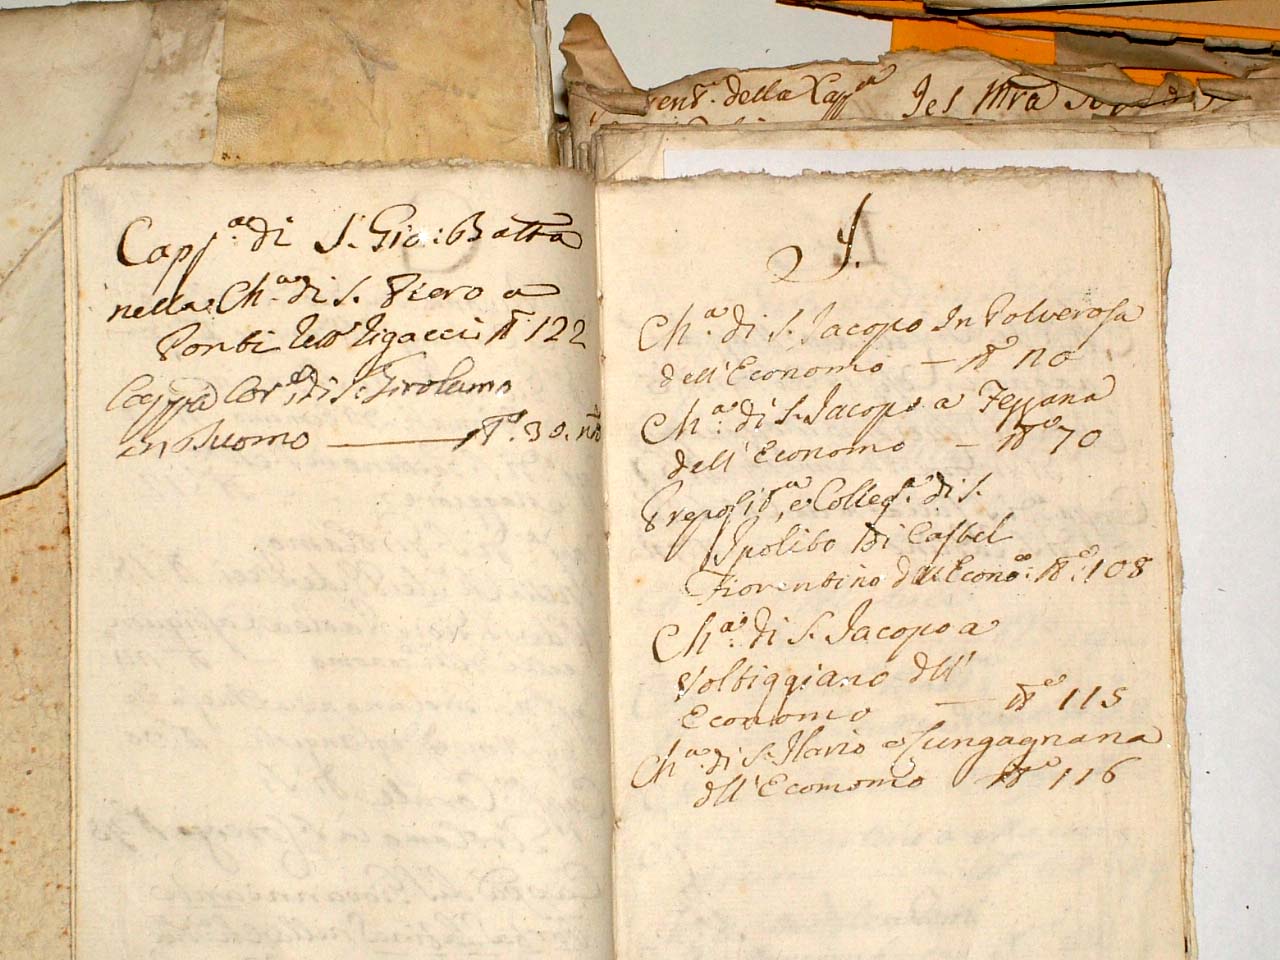 della Capp.a
Capp.a di S. Gio: Batta
nella Ch.a di S. Piero a
Ponti N.o 122
Capp.a Cor.a di S. Girolamo
in Duomo — N.o 30. n.o
I.
Ch.a di S. Jacopo In Polverosa
dell'Economo — N.o 110
Ch.a di S. Jacopo a
dell'Economo — N.o 70
Preposit.a, e Colleg.a di S.
Ipolito di Castel
Fiorentino dell Econo.o: N.o: 108
Ch.a di S. Jacopo a
Voltiggiano dell'
Economo — N.o 115
Ch.a di S. Ilario a Lungagnana
dell'Economo N.o 116